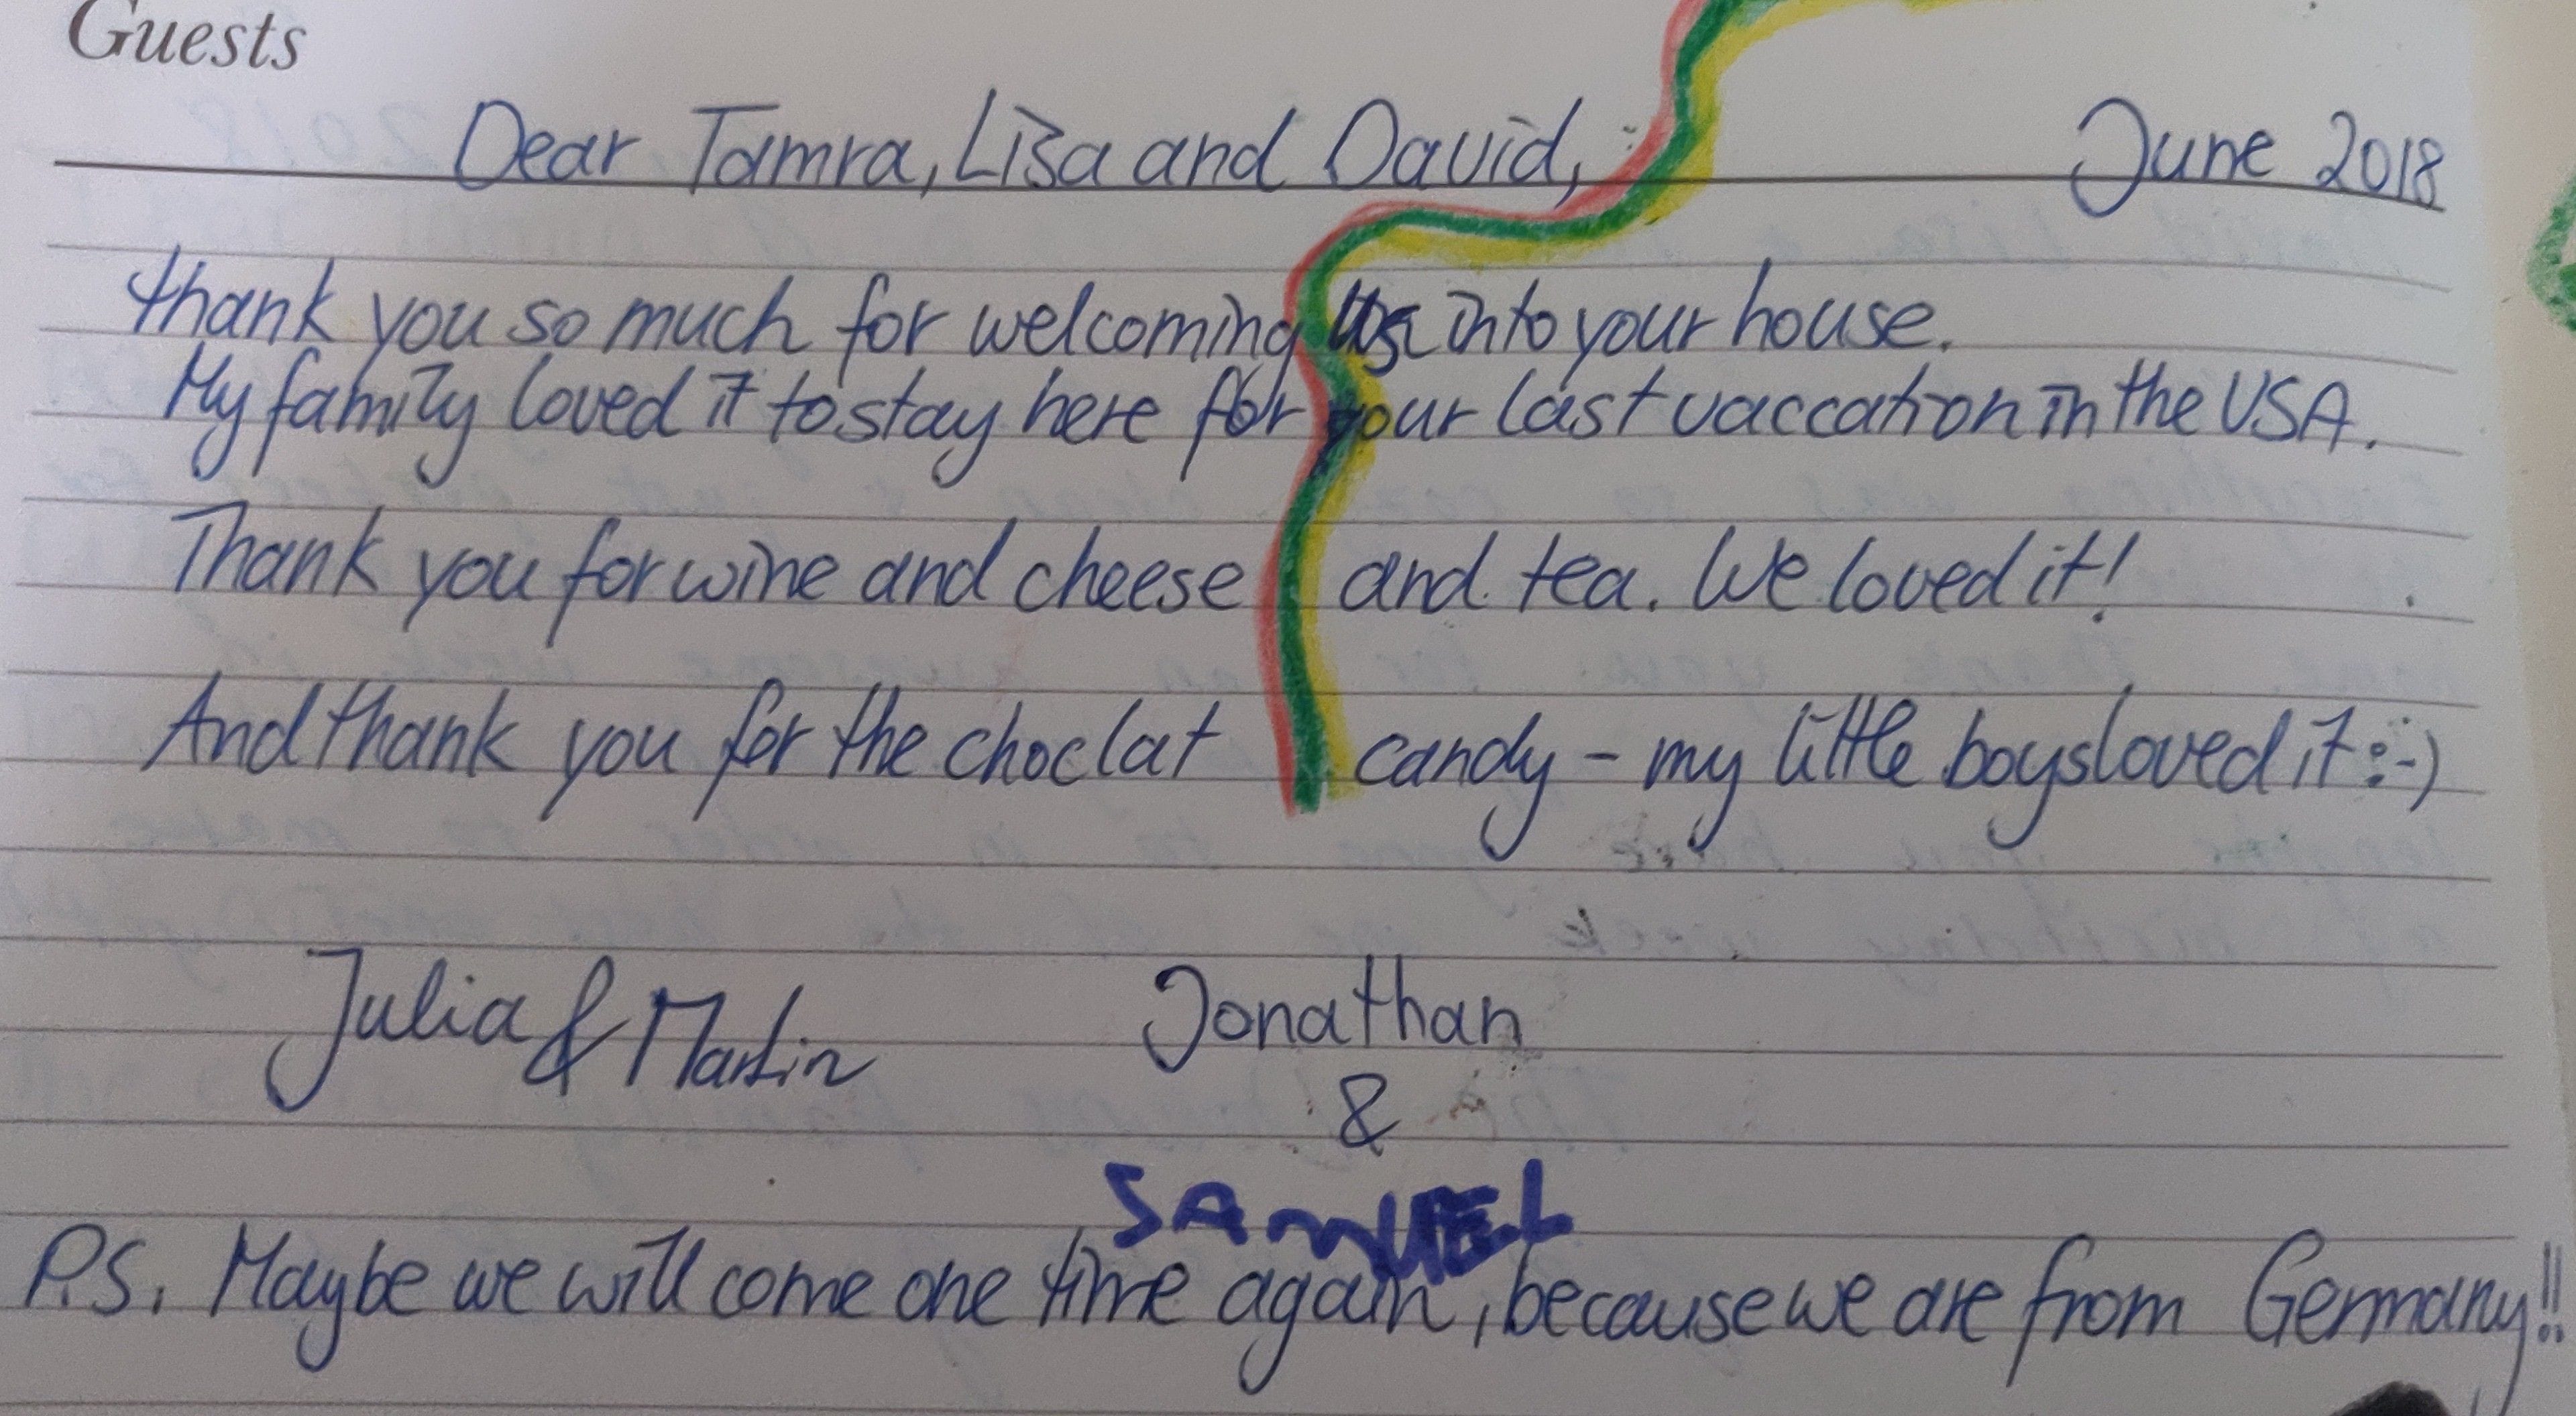 Guests
Dear Tamra, Lisa and David, June 2018
thank you so much for welcoming us into your house.
My family loved it to stay here for our last vaccation in the USA.
Thank you for wine and cheese and tea. We loved it!
And thank you for the choclat candy - my little boys loved it :-)
Julia & Martin Jonathan
&
SAMUEL
P.S. Maybe we will come one time again, because we are from Germany!!